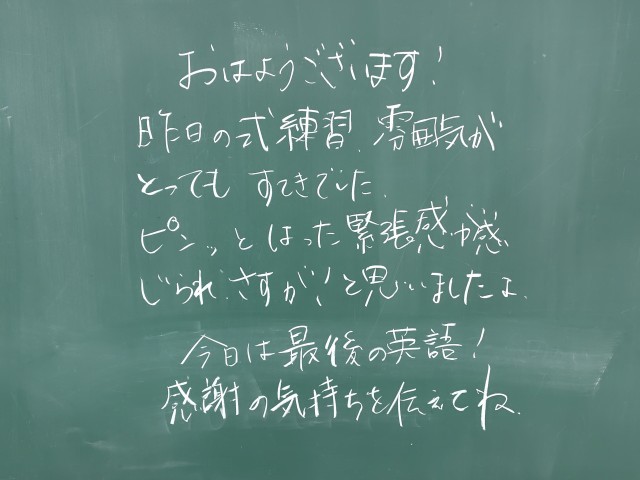 おはようございます!
昨日の式練習、雰囲気が
とっても すてきでした.
ピンッと はった緊張感が感
じられ、さすが!と思いましたよ.
今日は最後の英語!
感謝の気持ちを伝えてね.